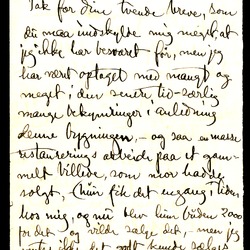 Tak for dine tvende breve, som
du maa undskylde mig meget, at
jeg ikke har besvaret før, men jeg
har været optaget med mangt og
meget i den senere tid – særlig
mange bekymringer i anledning
denne bygningen, – og saa en masse
restaurerings arbeide paa et gam-
melt billede, som mor hadde
solgt, (hun fik det engang i tiden
hos mig, og nu blev hun buden 2000
for det og vilde sælge det, men jeg
det godt kunde sælges